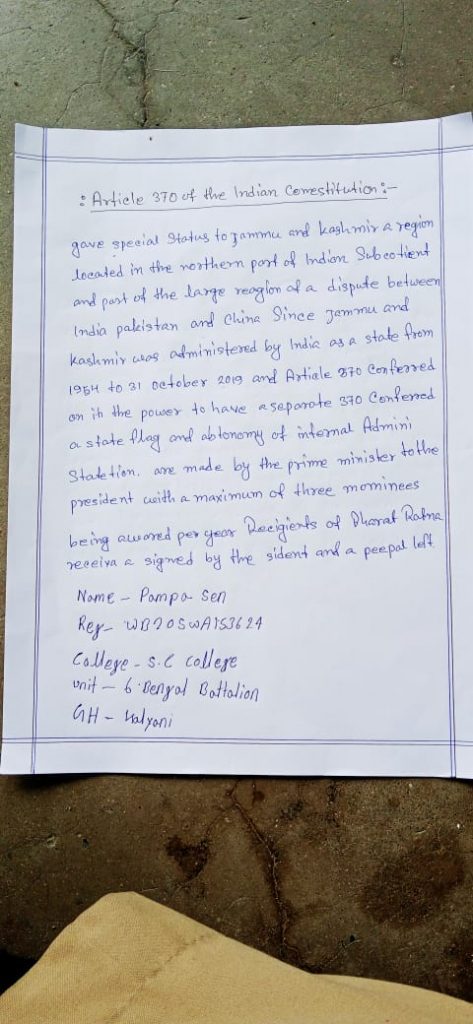 : Article 370 of the Indian Conestitution :-
gave special Status to Jammu and kashmir a region
located in the northern part of Indian Subcotient
and part of the large reagion of a dispute between
India pakistan and China Since Jammu and
kashmir was administered by India as a state from
1954 to 31 october 2019 and Article 370 Conferred
on ith the power to have a separate 370 Conferred
a state flag and abtonomy of internal Admini
Statetion. are made by the prime minister to the
president with a maximum of three mominees
being awared per year Recigients of Bharat Ratna
receiva a signed by the sident and a peepal left
Name - Pampa Sen
Reg- WB20SWA153624
College - S.C college
unit - 6 Bengal Battalion
GH - Kalyani